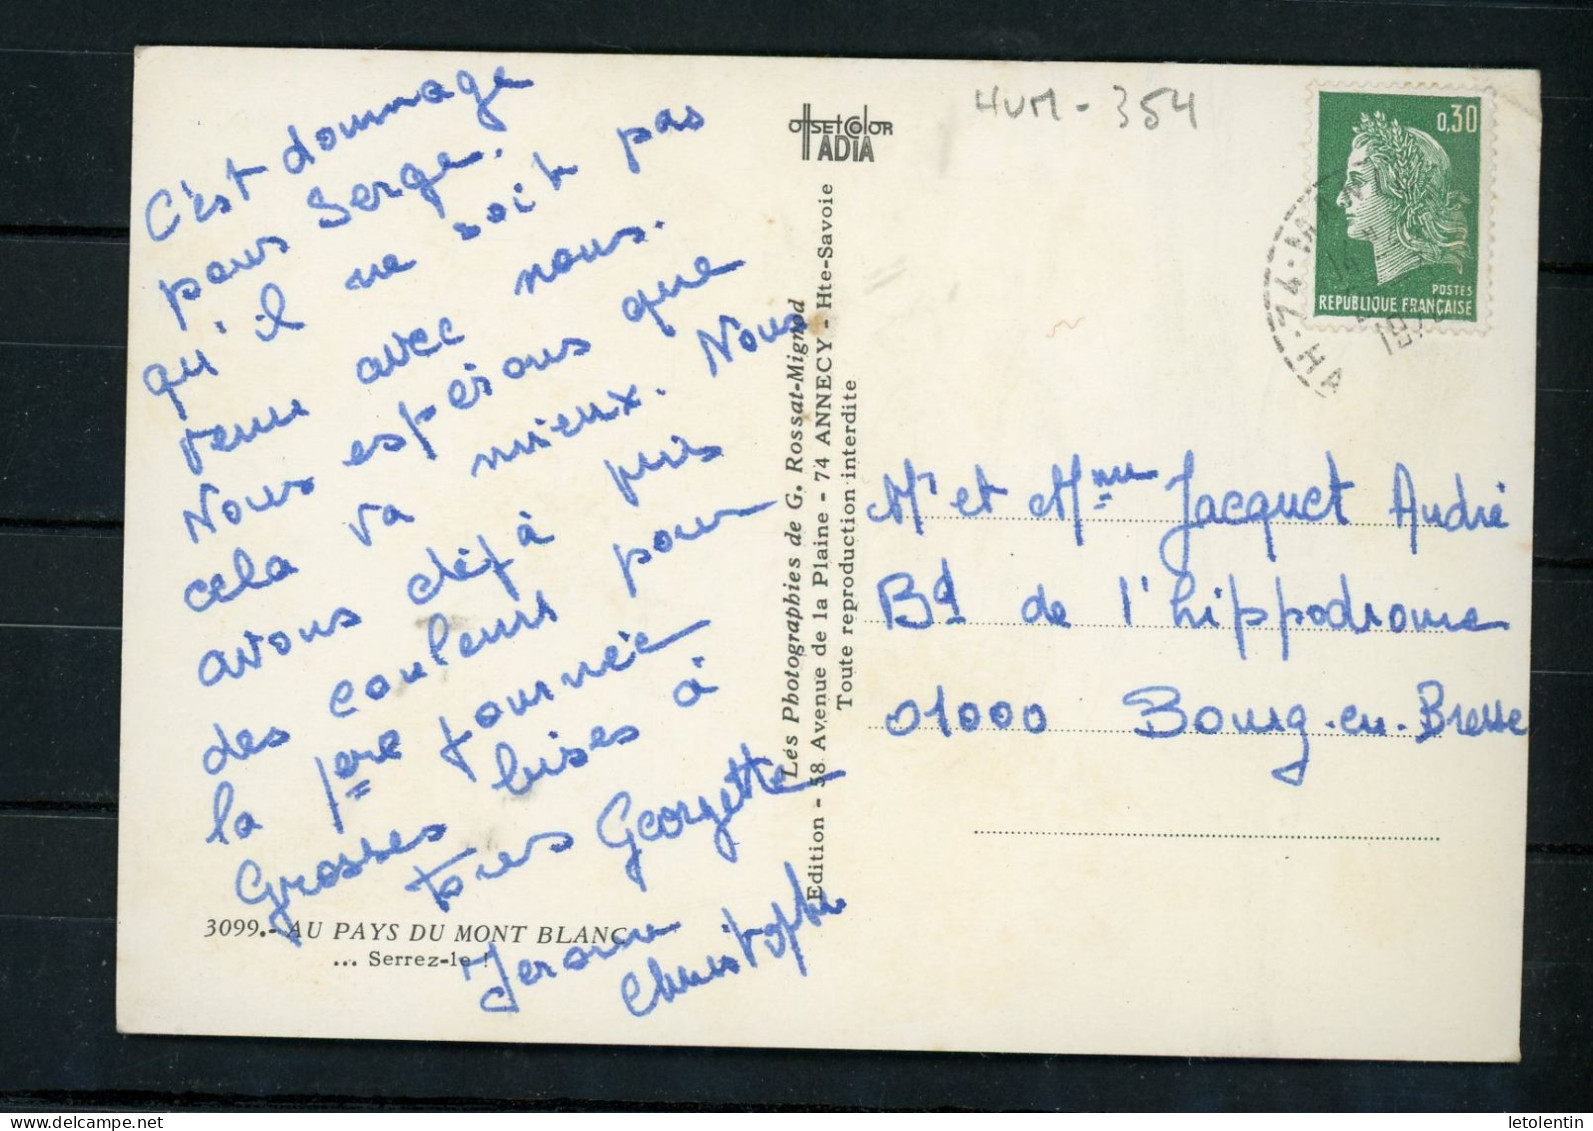 C'est dommage
pour Serge.
qu'il ne soit pas
venu avec nous.
Nous espérons que
cela va mieux. Nous
avons déjà pris
des couleurs pour
la 1ere journée
Grosses bises à
tous Georgette
Jerome
Christophe
3099.- AU PAYS DU MONT BLANC
... Serrez-le !
OffSET COlOR
ADIA
Les Photographies de G. Rossat-Mignod
Edition - 58 Avenue de la Plaine - 74 ANNECY - Hte-Savoie
Toute reproduction interdite
HUM - 354
0,30
POSTES
REPUBLIQUE FRANÇAISE
Mr et Mme Jacquet André
Bd de l'hippodrome
01000 Bourg-en-Bresse
letolentin